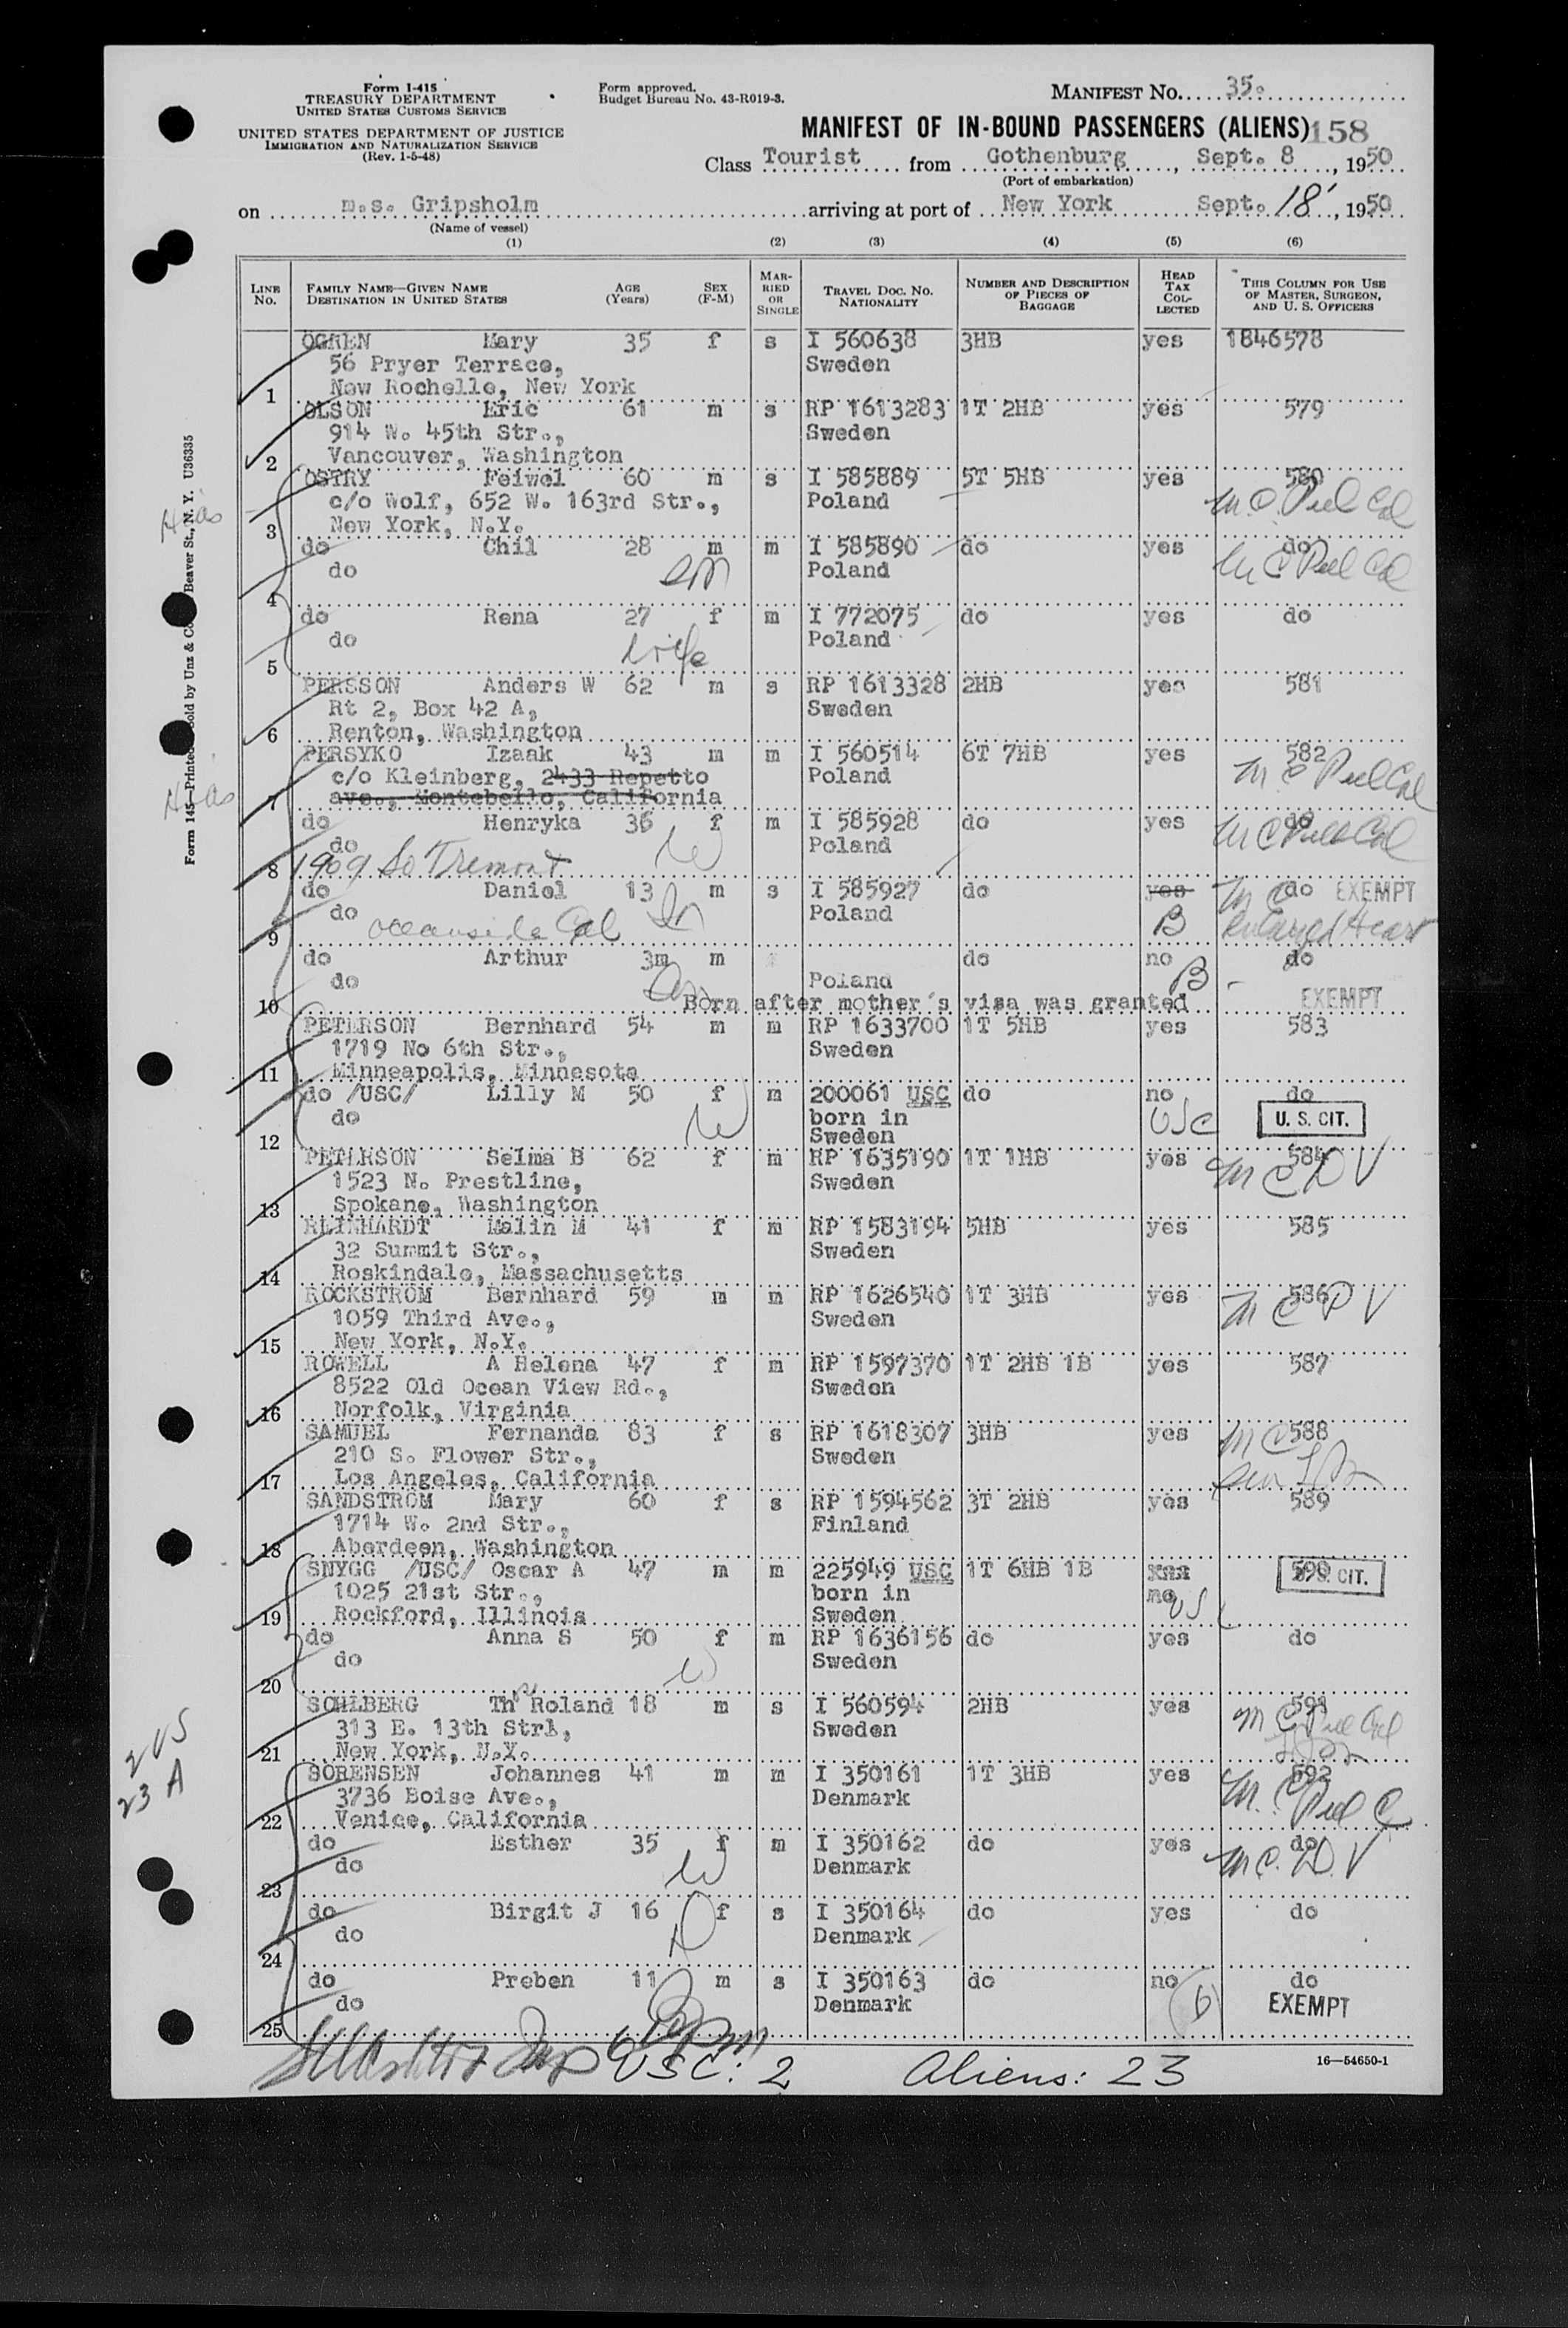 Form I-415
TREASURY DEPARTMENT
UNITED STATES CUSTOMS SERVICE
UNITED STATES DEPARTMENT OF JUSTICE
IMMIGRATION AND NATURALIZATION SERVICE
(Rev. 1-5-48)
Form approved.
Budget Bureau No. 43-R019-3.
MANIFEST NO. 35.
MANIFEST OF IN-BOUND PASSENGERS (ALIENS) 158
Class Tourist from Gothenburg, Sept. 8, 1950
(Port of embarkation)
on m.s. Gripsholm arriving at port of New York Sept. 18, 1950
(Name of vessel)
(1) (2) (3) (4) (5) (6)
LINE NO. FAMILY NAME—GIVEN NAME DESTINATION IN UNITED STATES AGE (Years) SEX (F-M) MARRIED OR SINGLE TRAVEL DOC. NO. NATIONALITY NUMBER AND DESCRIPTION OF PIECES OF BAGGAGE HEAD TAX COLLECTED THIS COLUMN FOR USE OF MASTER, SURGEON, AND U. S. OFFICERS
OGREN Mary 35 f s I 560638 3HB yes 1846578
56 Pryer Terrace, Sweden
1 New Rochelle, New York
OLSON Eric 61 m s RP 1613283 1T 2HB yes 579
914 W. 45th Str., Sweden
2 Vancouver, Washington
OSTRY Feiwel 60 m s I 585889 5T 5HB yes 580
c/o Wolf, 652 W. 163rd Str., Poland
3 New York, N.Y.
do Chil 28 m m I 585890 do yes do
do Poland
4
do Rena 27 f m I 772075 do yes do
do wife Poland
5
PERSSON Anders W 62 m s RP 1613328 2HB yes 581
Rt 2, Box 42 A, Sweden
6 Renton, Washington
PERSYKO Izaak 43 m m I 560514 6T 7HB yes 582
c/o Kleinberg, 2433 Repetto Poland
7 ave., Montebello, California
do Henryka 36 f m I 585928 do yes do
do W Poland
8 1909 So Tremont
do Daniel 13 m s I 585927 do yes do EXEMPT
do Oceanside Cal Poland B Enlarged Heart
9
do Arthur 3m m do no do
do Poland B
10 Born after mother's visa was granted EXEMPT
PETERSON Bernhard 54 m m RP 1633700 1T 5HB yes 583
1719 No 6th Str., Sweden
11 Minneapolis, Minnesota
do /USC/ Lilly M 50 f m 200061 USC do no do
do W born in USC U. S. CIT.
12 Sweden
PETERSON Selma B 62 f m RP 1635190 1T 1HB yes 584
1523 N. Prestline, Sweden
13 Spokane, Washington
REINHARDT Malin M 41 f m RP 1583194 5HB yes 585
32 Summit Str., Sweden
14 Roskindale, Massachusetts
ROCKSTROM Bernhard 59 m m RP 1626540 1T 3HB yes 586
1059 Third Ave., Sweden
15 New York, N.Y.
ROWELL A Helena 47 f m RP 1597370 1T 2HB 1B yes 587
8522 Old Ocean View Rd., Sweden
16 Norfolk, Virginia
SAMUEL Fernanda 83 f s RP 1618307 3HB yes 588
210 S. Flower Str., Sweden
17 Los Angeles, California
SANDSTROM Mary 60 f s RP 1594562 3T 2HB yes 589
1714 W. 2nd Str., Finland
18 Aberdeen, Washington
SNYGG /USC/ Oscar A 47 m m 225949 USC 1T 6HB 1B 590 U. S. CIT.
1025 21st Str., born in no
19 Rockford, Illinois Sweden
do Anna S 50 f m RP 1636156 do yes do
do W Sweden
20
SOHLBERG Th Roland 18 m s I 560594 2HB yes 591
313 E. 13th Str., Sweden
21 New York, N.Y.
SORENSEN Johannes 41 m m I 350161 1T 3HB yes 592
3736 Boise Ave., Denmark
22 Venice, California
do Esther 35 f m I 350162 do yes do
do W Denmark
23
do Birgit J 16 f s I 350164 do yes do
do D Denmark
24
do Preben 11 m s I 350163 do no do
do Denmark EXEMPT
25
USC: 2 Aliens: 23
16—54650-1
Hias
Hias
2 US
23 A